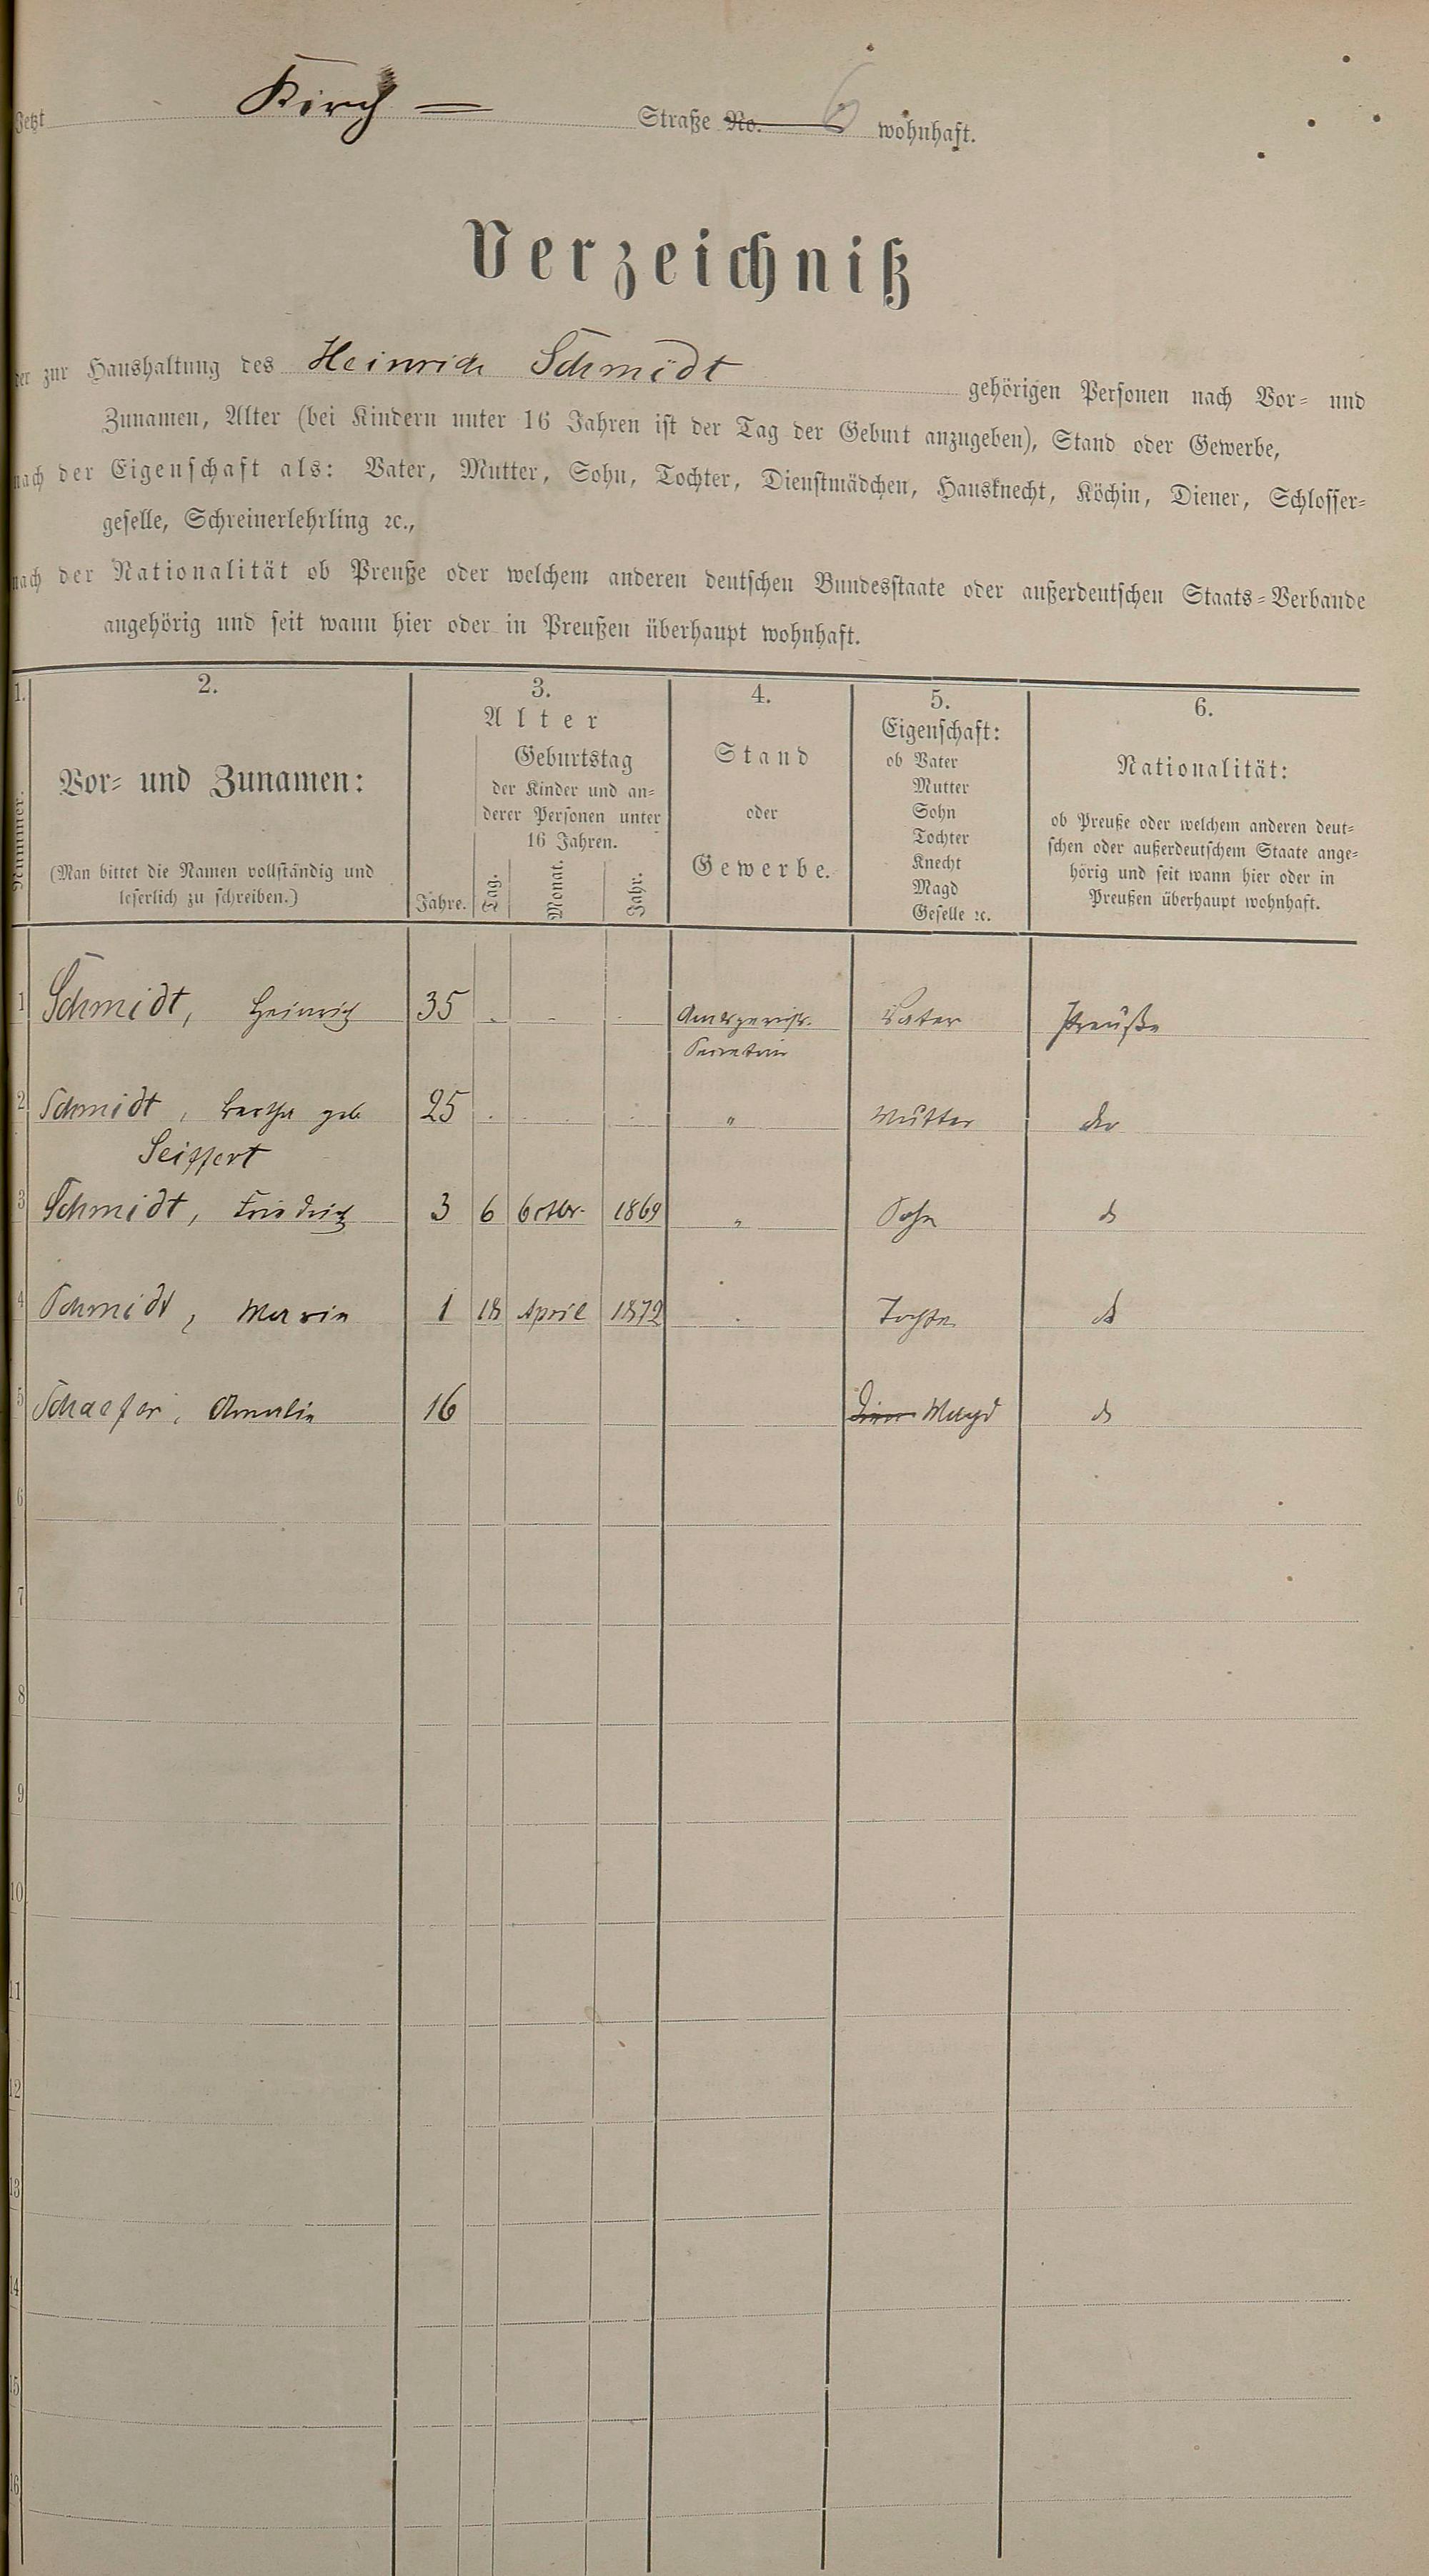 Jetzt Kirch — Straße No. 6 wohnhaft.
Verzeichniß
der zur Haushaltung des Heinrich Schmidt gehörigen Personen nach Vor- und
Zunamen, Alter (bei Kindern unter 16 Jahren ist der Tag der Geburt anzugeben), Stand oder Gewerbe,
nach der Eigenschaft als: Vater, Mutter, Sohn, Tochter, Dienstmädchen, Hausknecht, Köchin, Diener, Schlosser-
geselle, Schreinerlehrling ꝛc.,
nach der Nationalität ob Preuße oder welchem anderen deutschen Bundesstaate oder außerdeutschen Staats-Verbande
angehörig und seit wann hier oder in Preußen überhaupt wohnhaft.
1.
Nummer.
2.
Vor- und Zunamen:
(Man bittet die Namen vollständig und
leserlich zu schreiben.)
3.
Alter
Geburtstag
der Kinder und an-
derer Personen unter
16 Jahren.
Jahre. Tag. Monat. Jahr.
4.
Stand
oder
Gewerbe.
5.
Eigenschaft:
ob Vater
Mutter
Sohn
Tochter
Knecht
Magd
Geselle ꝛc.
6.
Nationalität:
ob Preuße oder welchem anderen deut-
schen oder außerdeutschem Staate ange-
hörig und seit wann hier oder in
Preußen überhaupt wohnhaft.
1 Schmidt, Heinrich 35 . - . Amtsgerichts- Vater Preuße
Secretair
2 Schmidt, Bertha geb 25 . . " Mutter do
Seiffert
3 Schmidt, Friedrich 3 6 Octbr. 1869 " Sohn do
4 Schmidt, Marie 1 18 April 1872 . Tochter do
5 Schaefer, Amalie 16 Magd do
6
7
8
9
10
11
12
13
14
15
16